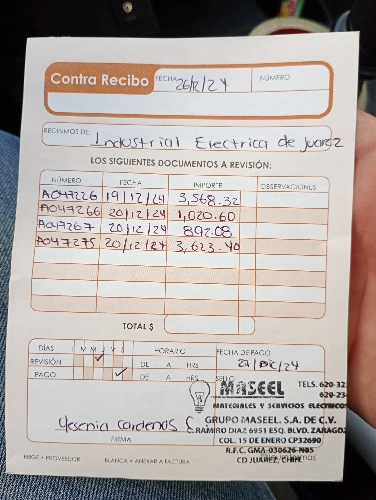 Contra Recibo FECHA 26/12/24 NÚMERO
RECIBIMOS DE Industrial Electrica de Juarez
LOS SIGUIENTES DOCUMENTOS A REVISIÓN:
NÚMERO FECHA IMPORTE OBSERVACIONES
A047226 19/12/24 3,568.32
A047266 20/12/24 1,020.60
A047267 20/12/24 892.08
A047275 20/12/24 3,623.40
TOTAL $
DÍAS L M M J V S HORARIO FECHA DE PAGO
REVISIÓN DE A HRS 27/Dic/24
PAGO DE A HRS SELLO
MASEEL TELS. 620-32
MATERIALES Y SERVICIOS ELECTRICOS
Yesenia Cardenas C. GRUPO MASEEL. S.A. DE C.V.
C. RAMIRO DIAZ 6951 ESQ. BLVD. ZARAGOZ
FIRMA COL. 15 DE ENERO CP32690
R.F.C. GMA-030626-N85
BLANCA • ANEXAR A FACTURA CD JUAREZ, CHIH.